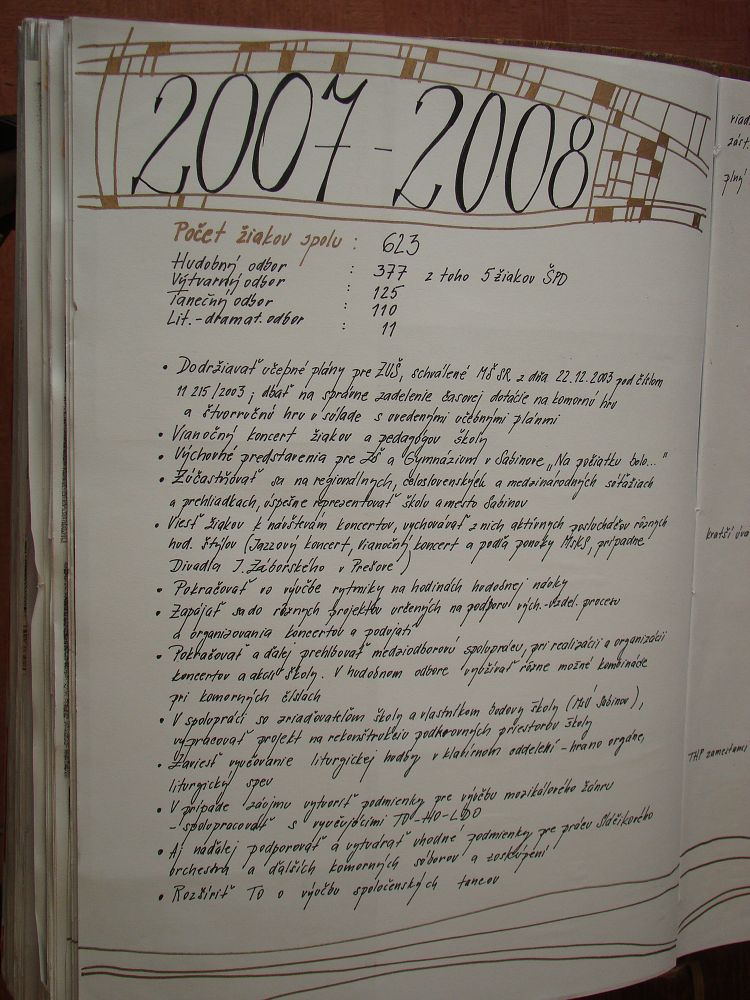 2007 - 2008
Počet žiakov spolu : 623
Hudobný odbor : 377 z toho 5 žiakov ŠPD
Výtvarný odbor : 125
Tanečný odbor : 110
Lit.-dramat. odbor : 11
• Dodržiavať učebné plány pre ZUŠ, schválené MŠ SR z dňa 22.12.2003 pod číslom
11 215/2003 ; dbať na správne zadelenie časovej dotácie na komornú hru
a štvorručnú hru v súlade s uvedenými učebnými plánmi
• Vianočný koncert žiakov a pedagógov školy
• Výchovné predstavenia pre ZŠ a Gymnázium v Sabinove „Na počiatku bolo..."
• Zúčastňovať sa na regionálnych, celoslovenských a medzinárodných súťažiach
a prehliadkach, úspešne reprezentovať školu a mesto Sabinov
• Viesť žiakov k návštevám koncertov, vychovávať z nich aktívnych poslucháčov rôznych
hud. štýlov (Jazzový koncert, Vianočný koncert a podľa ponuky MsKS, prípadne
Divadla J. Záborského v Prešove)
• Pokračovať vo výučbe rytmiky na hodinách hudobnej náuky
• Zapájať sa do rôznych projektov určených na podporu vých.-vzdel. procesu
a organizovania koncertov a podujatí
• Pokračovať a ďalej prehlbovať medziodborovú spoluprácu, pri realizácii a organizácii
koncertov a akcií školy. V hudobnom odbore využívať rôzne možné kombinácie
pri komorných číslach
• V spolupráci so zriaďovateľom školy a vlastníkom budovy školy (MsÚ Sabinov),
vypracovať projekt na rekonštrukciu podkrovných priestorov školy
• Zaviesť vyučovanie liturgickej hudby v klavírnom oddelení - hra na organe,
liturgický spev
• V prípade záujmu vytvoriť podmienky pre výučbu muzikálového žánru
- spolupracovať s vyučujúcimi TO-HO-LDO
• Aj naďalej podporovať a vytvárať vhodné podmienky pre prácu Sláčikového
orchestra a ďalších komorných súborov a zoskupení
• Rozšíriť TO o výučbu spoločenských tancov
riad.
zást.
plný
kratší úvä
THP zamestnanci